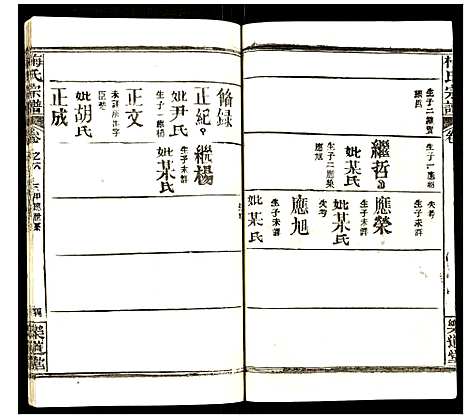 梅氏宗譜
生子二繼賢
繼哲
生子一應裕
繼哲
妣某氏
生子二應榮
應旭
失考
妣某氏
生子未詳
應榮
失考
妣某氏
生子未詳
應旭
失考
妣某氏
生子未詳
樂道堂
脩錄
正紀
妣尹氏
生子一繼楊
繼楊
妣某氏
生子未詳
正文
未詳
妣胡氏
正成
梅氏宗譜
卷之六
樂道堂